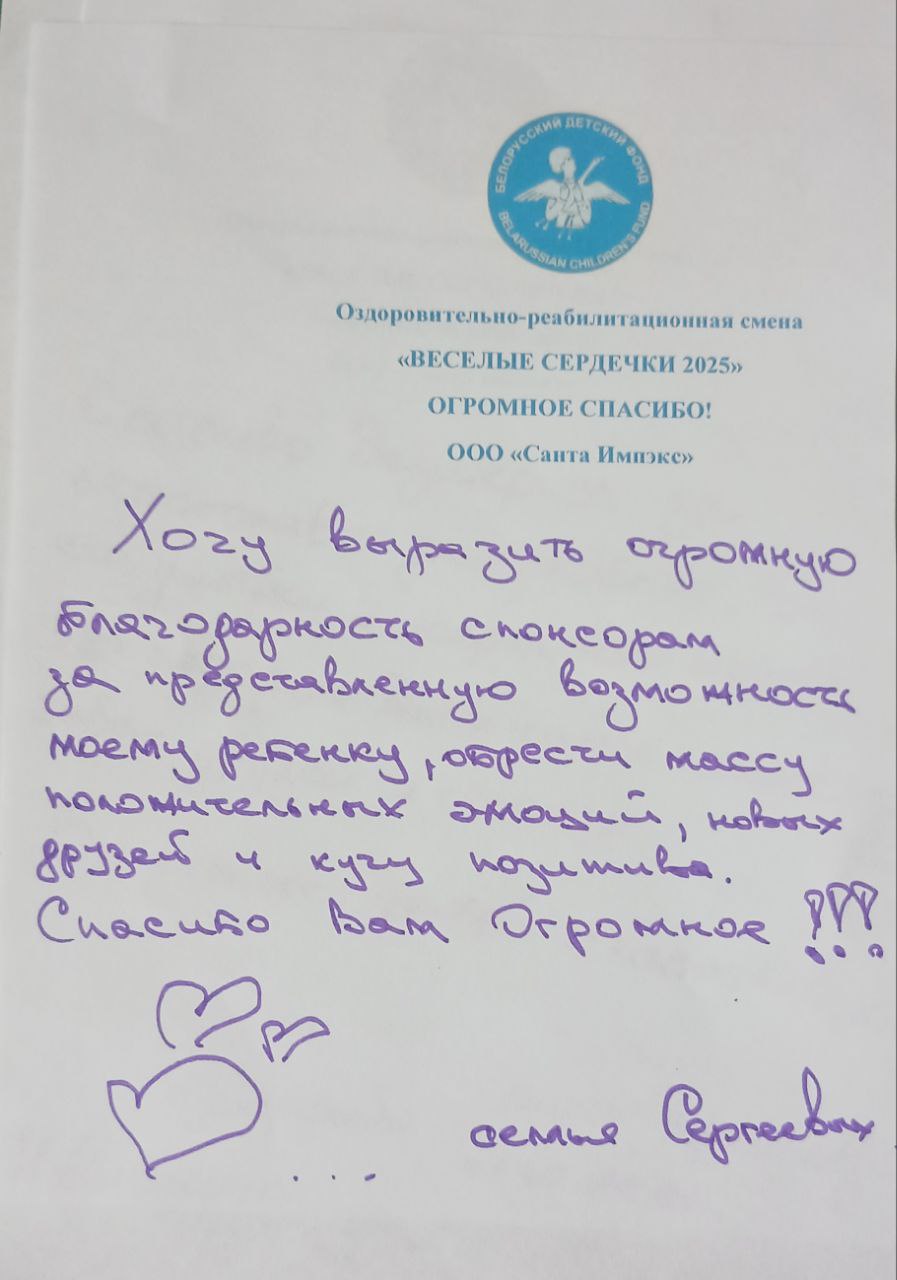 БЕЛОРУССКИЙ ДЕТСКИЙ ФОНД
BELARUSSIAN CHILDREN'S FUND
Оздоровительно-реабилитационная смена
«ВЕСЕЛЫЕ СЕРДЕЧКИ 2025»
ОГРОМНОЕ СПАСИБО!
ООО «Санта Импэкс»
Хочу выразить огромную
благодарность спонсорам
за представленную возможность
моему ребенку, обрести массу
положительных эмоций, новых
друзей и кучу позитива.
Спасибо Вам Огромное !!!
...
семья Сергеевых